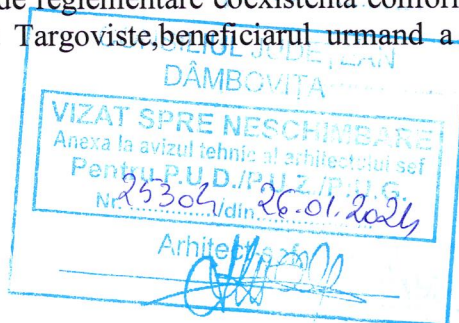 de reglementare coexistenta
Targoviste,beneficiarul urmand a
CONSILIUL JUDEȚEAN
DÂMBOVIȚA
VIZAT SPRE NESCHIMBARE
Anexa la avizul tehnic al arhitectului sef
Pentru P.U.D./P.U.Z./P.U.G.
Nr. 25304/din 26.01.2024
Arhitect sef